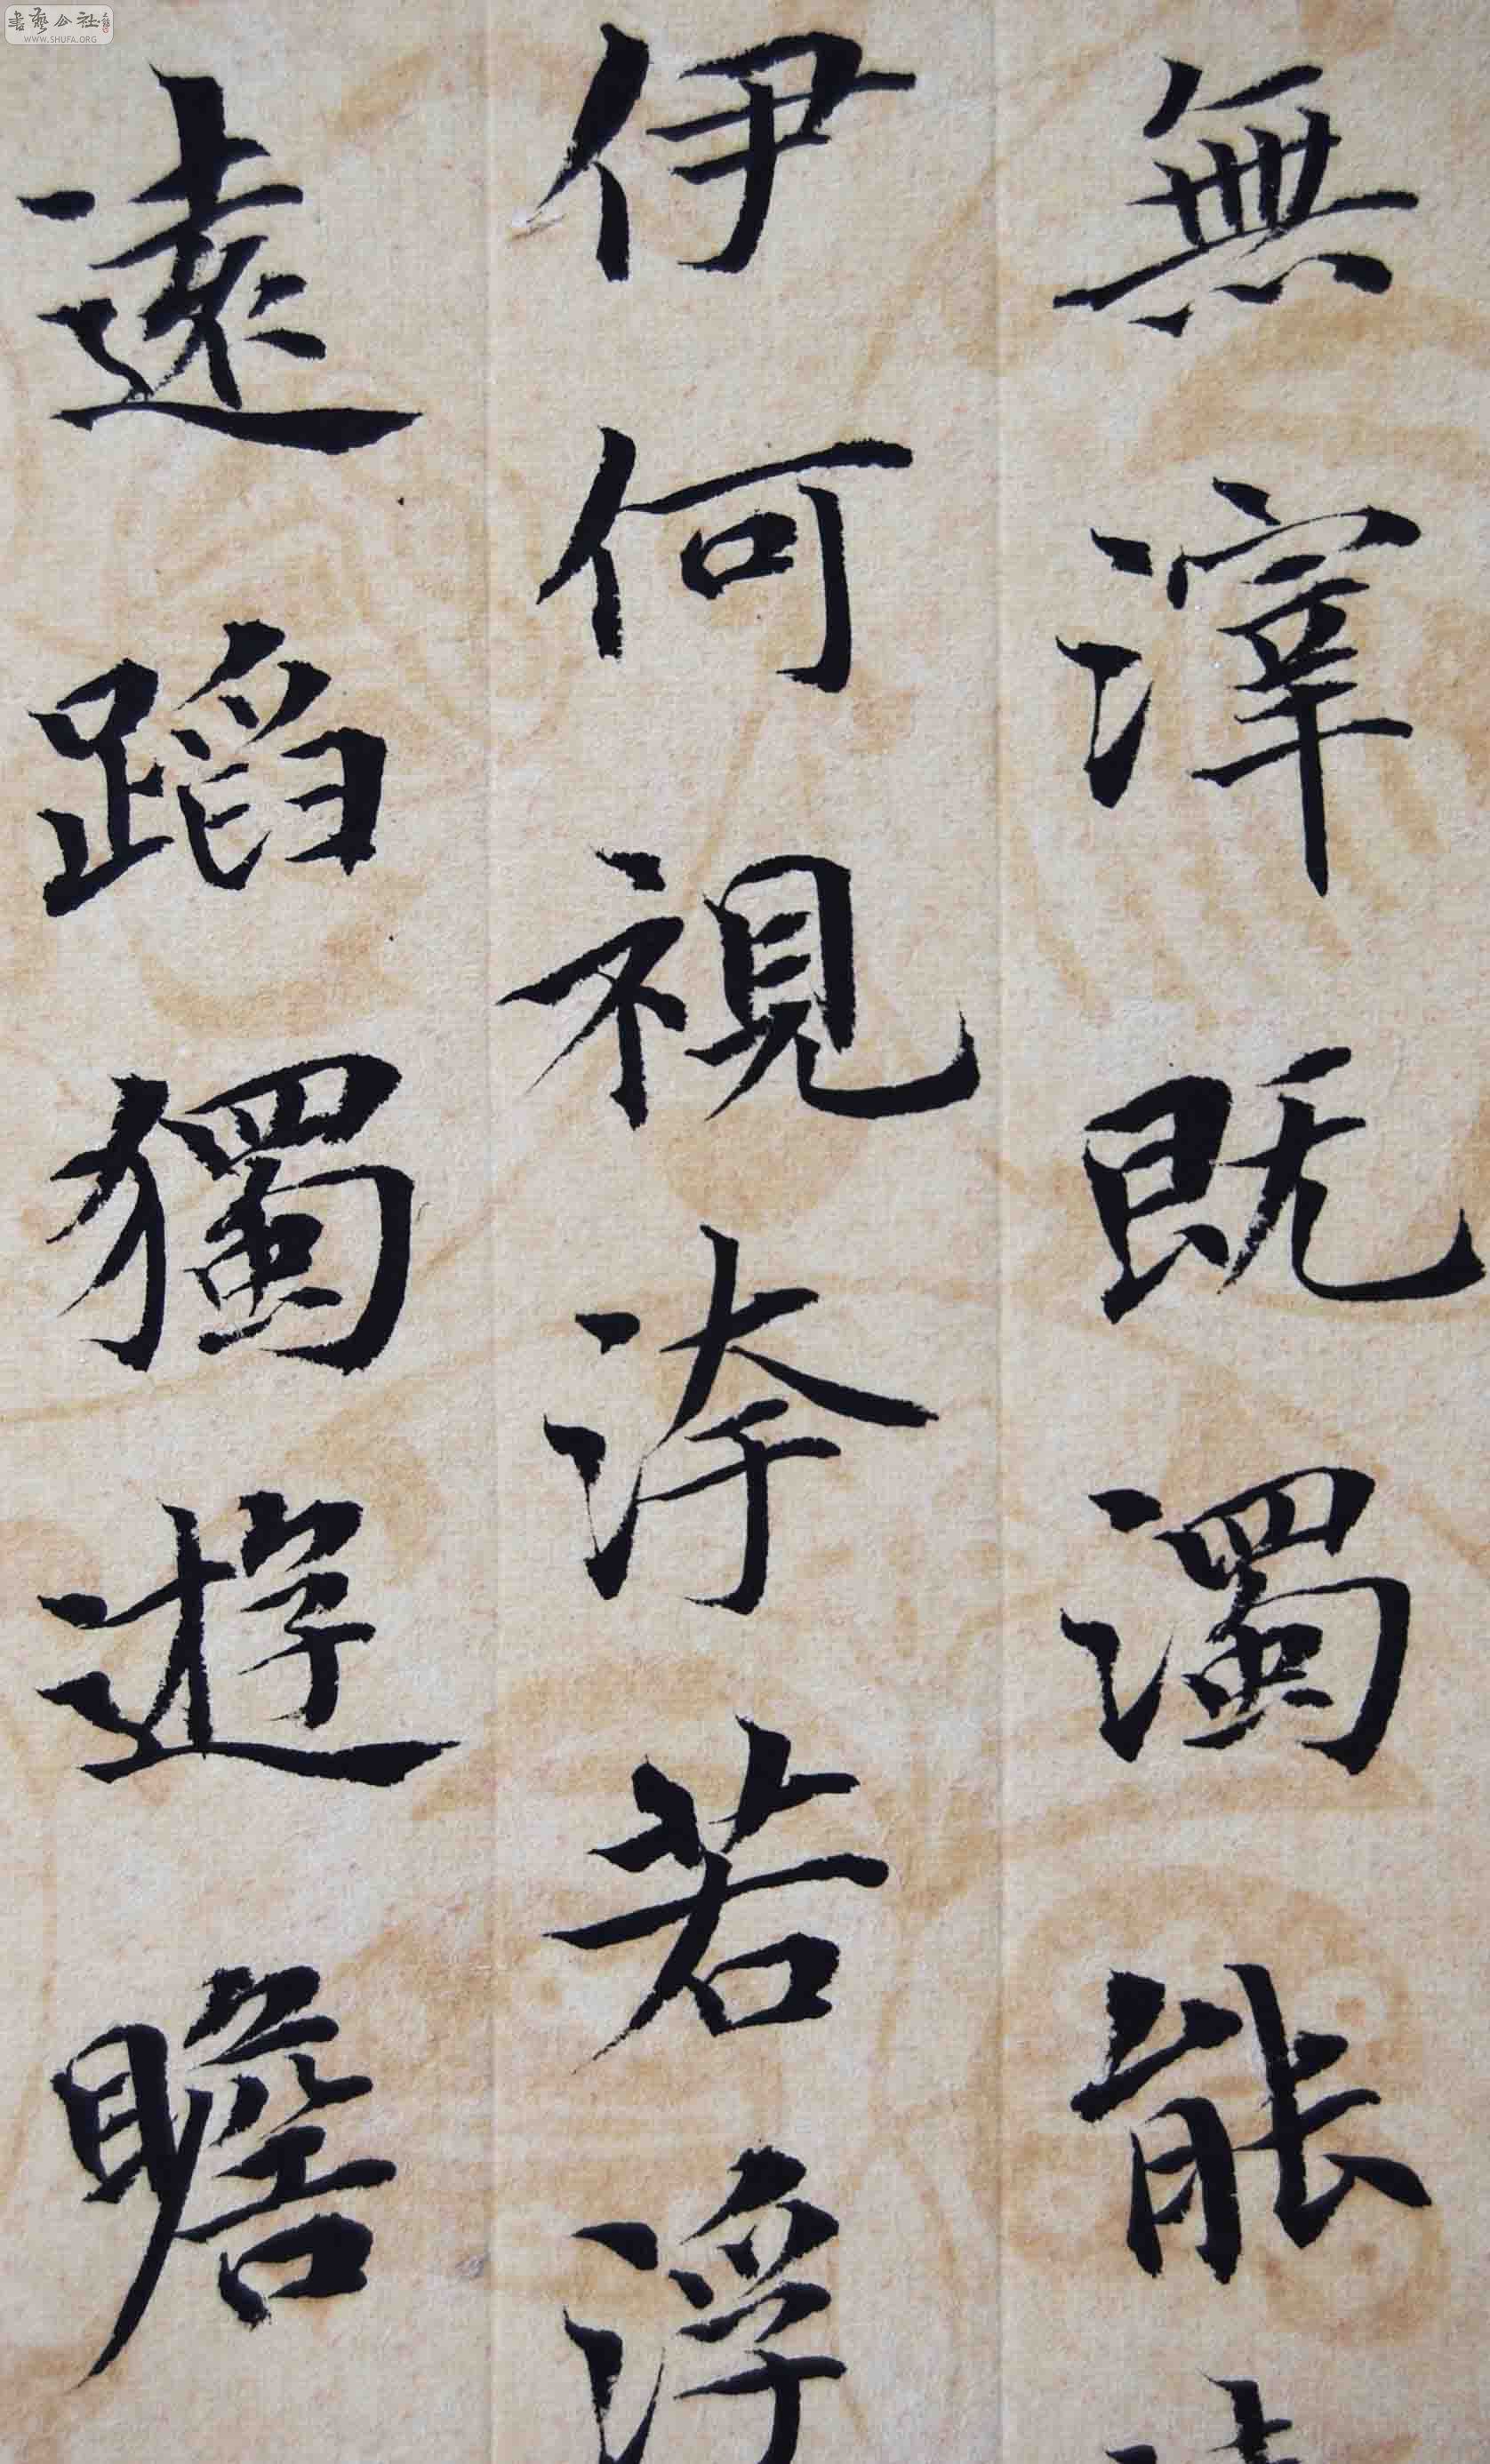 無滓既濁能
伊何視洿若浮
遠蹈獨遊瞻
書藝公社
WWW.SHUFA.ORG